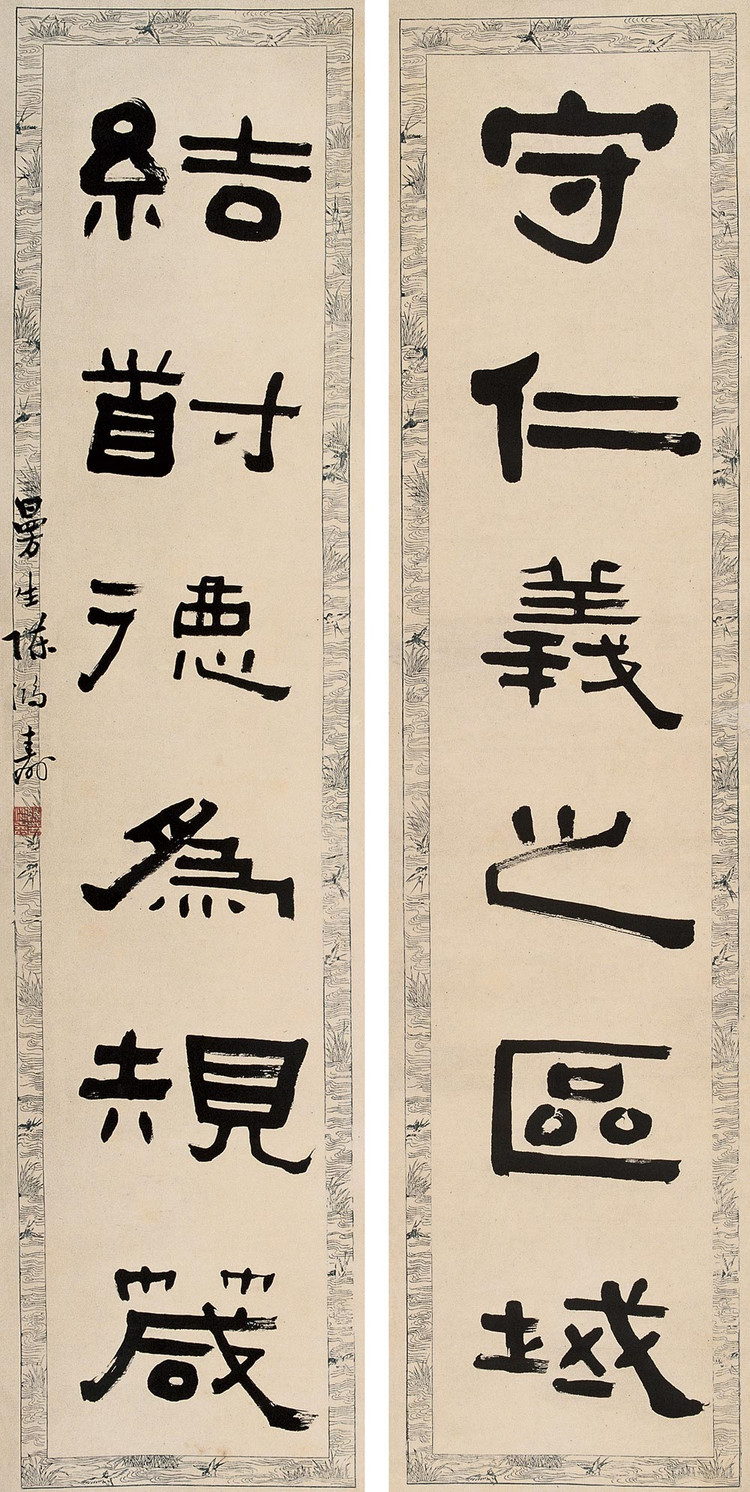 守仁義之區域
結𡬹德為規箴
曼生陳鴻壽